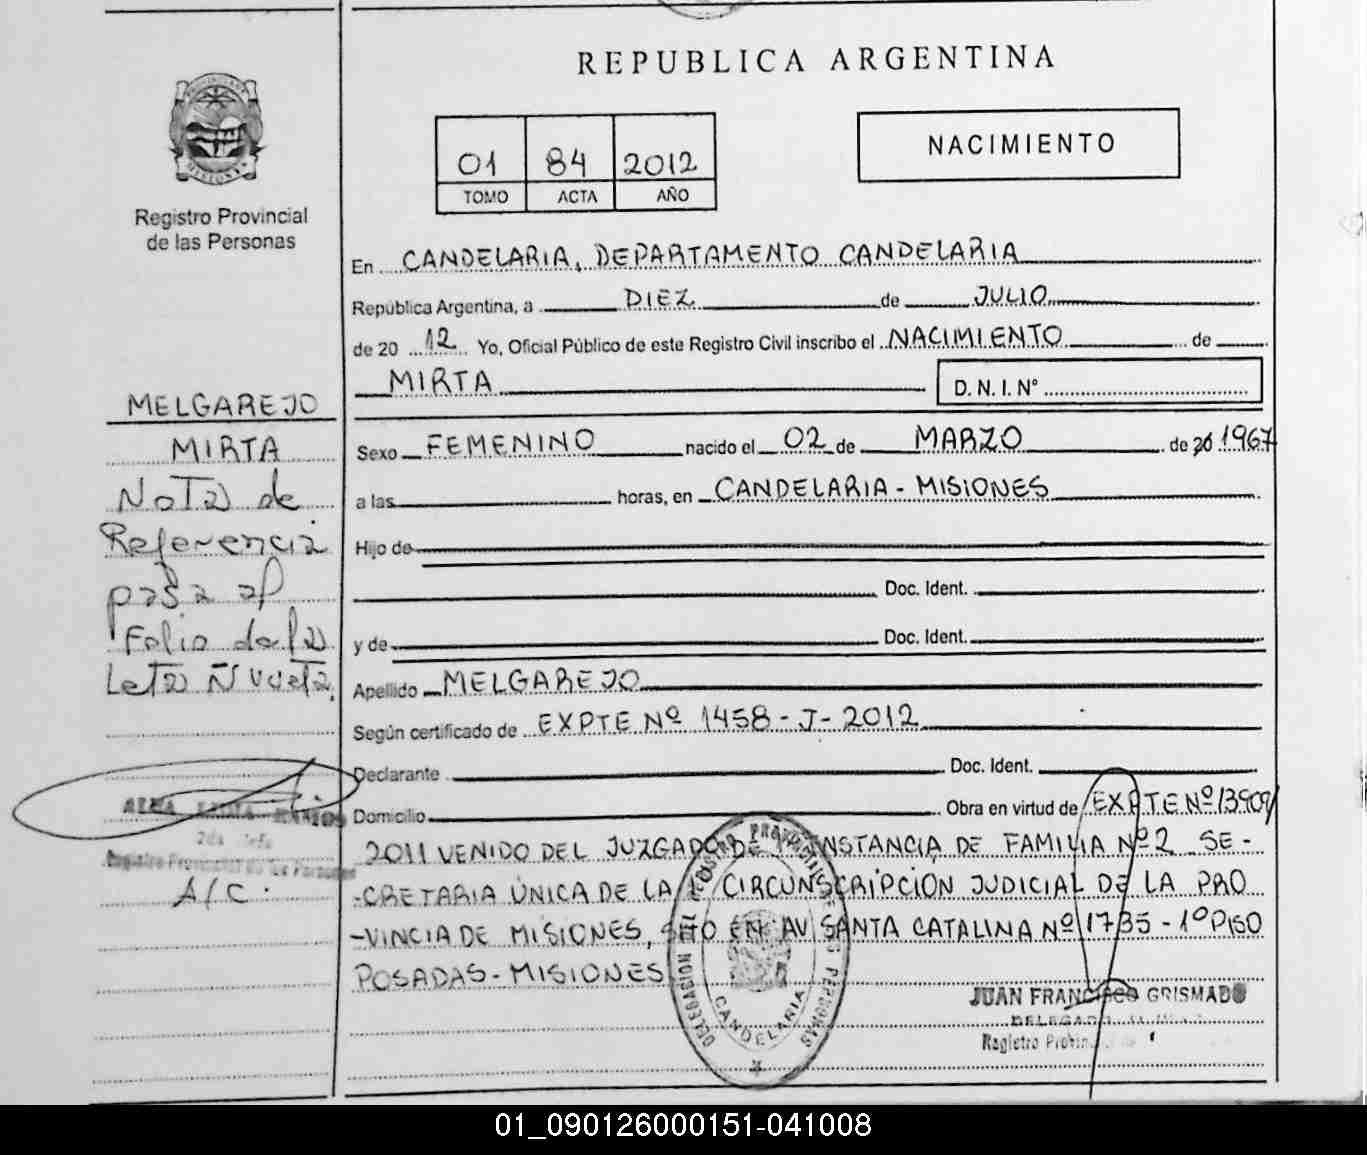 REPUBLICA ARGENTINA
01 84 2012
TOMO ACTA AÑO
NACIMIENTO
Registro Provincial
de las Personas
En CANDELARIA, DEPARTAMENTO CANDELARIA
República Argentina, a DIEZ de JULIO
de 20 12 Yo, Oficial Público de este Registro Civil inscribo el NACIMIENTO de
MIRTA D. N. I. N°
Sexo FEMENINO nacido el 02 de MARZO de 20 1967
a las horas, en CANDELARIA - MISIONES
Hijo de
Doc. Ident.
y de Doc. Ident.
Apellido MELGAREJO
Según certificado de EXPTE Nº 1458 - J - 2012
Declarante Doc. Ident.
Domicilio Obra en virtud de EXPTE Nº 13909/
2011 VENIDO DEL JUZGADO DE INSTANCIA DE FAMILIA Nº 2 SE-
-CRETARIA ÚNICA DE LA CIRCUNSCRIPCIÓN JUDICIAL DE LA PRO
-VINCIA DE MISIONES, SITO EN AV SANTA CATALINA Nº 1735 - 1º PISO
POSADAS - MISIONES
MELGAREJO
MIRTA
Nota de
Referencia
pasa al
Folio de la
Leta Ñ vuelta.
2da Jefa
Registro Provincial de las Personas
A/C.
DELEGACION REGISTRO PROVINCIAL DE LAS PERSONAS
CANDELARIA
JUAN FRANCISCO GRISMADO
DELEGADO
Registro Provincial
01_090126000151-041008